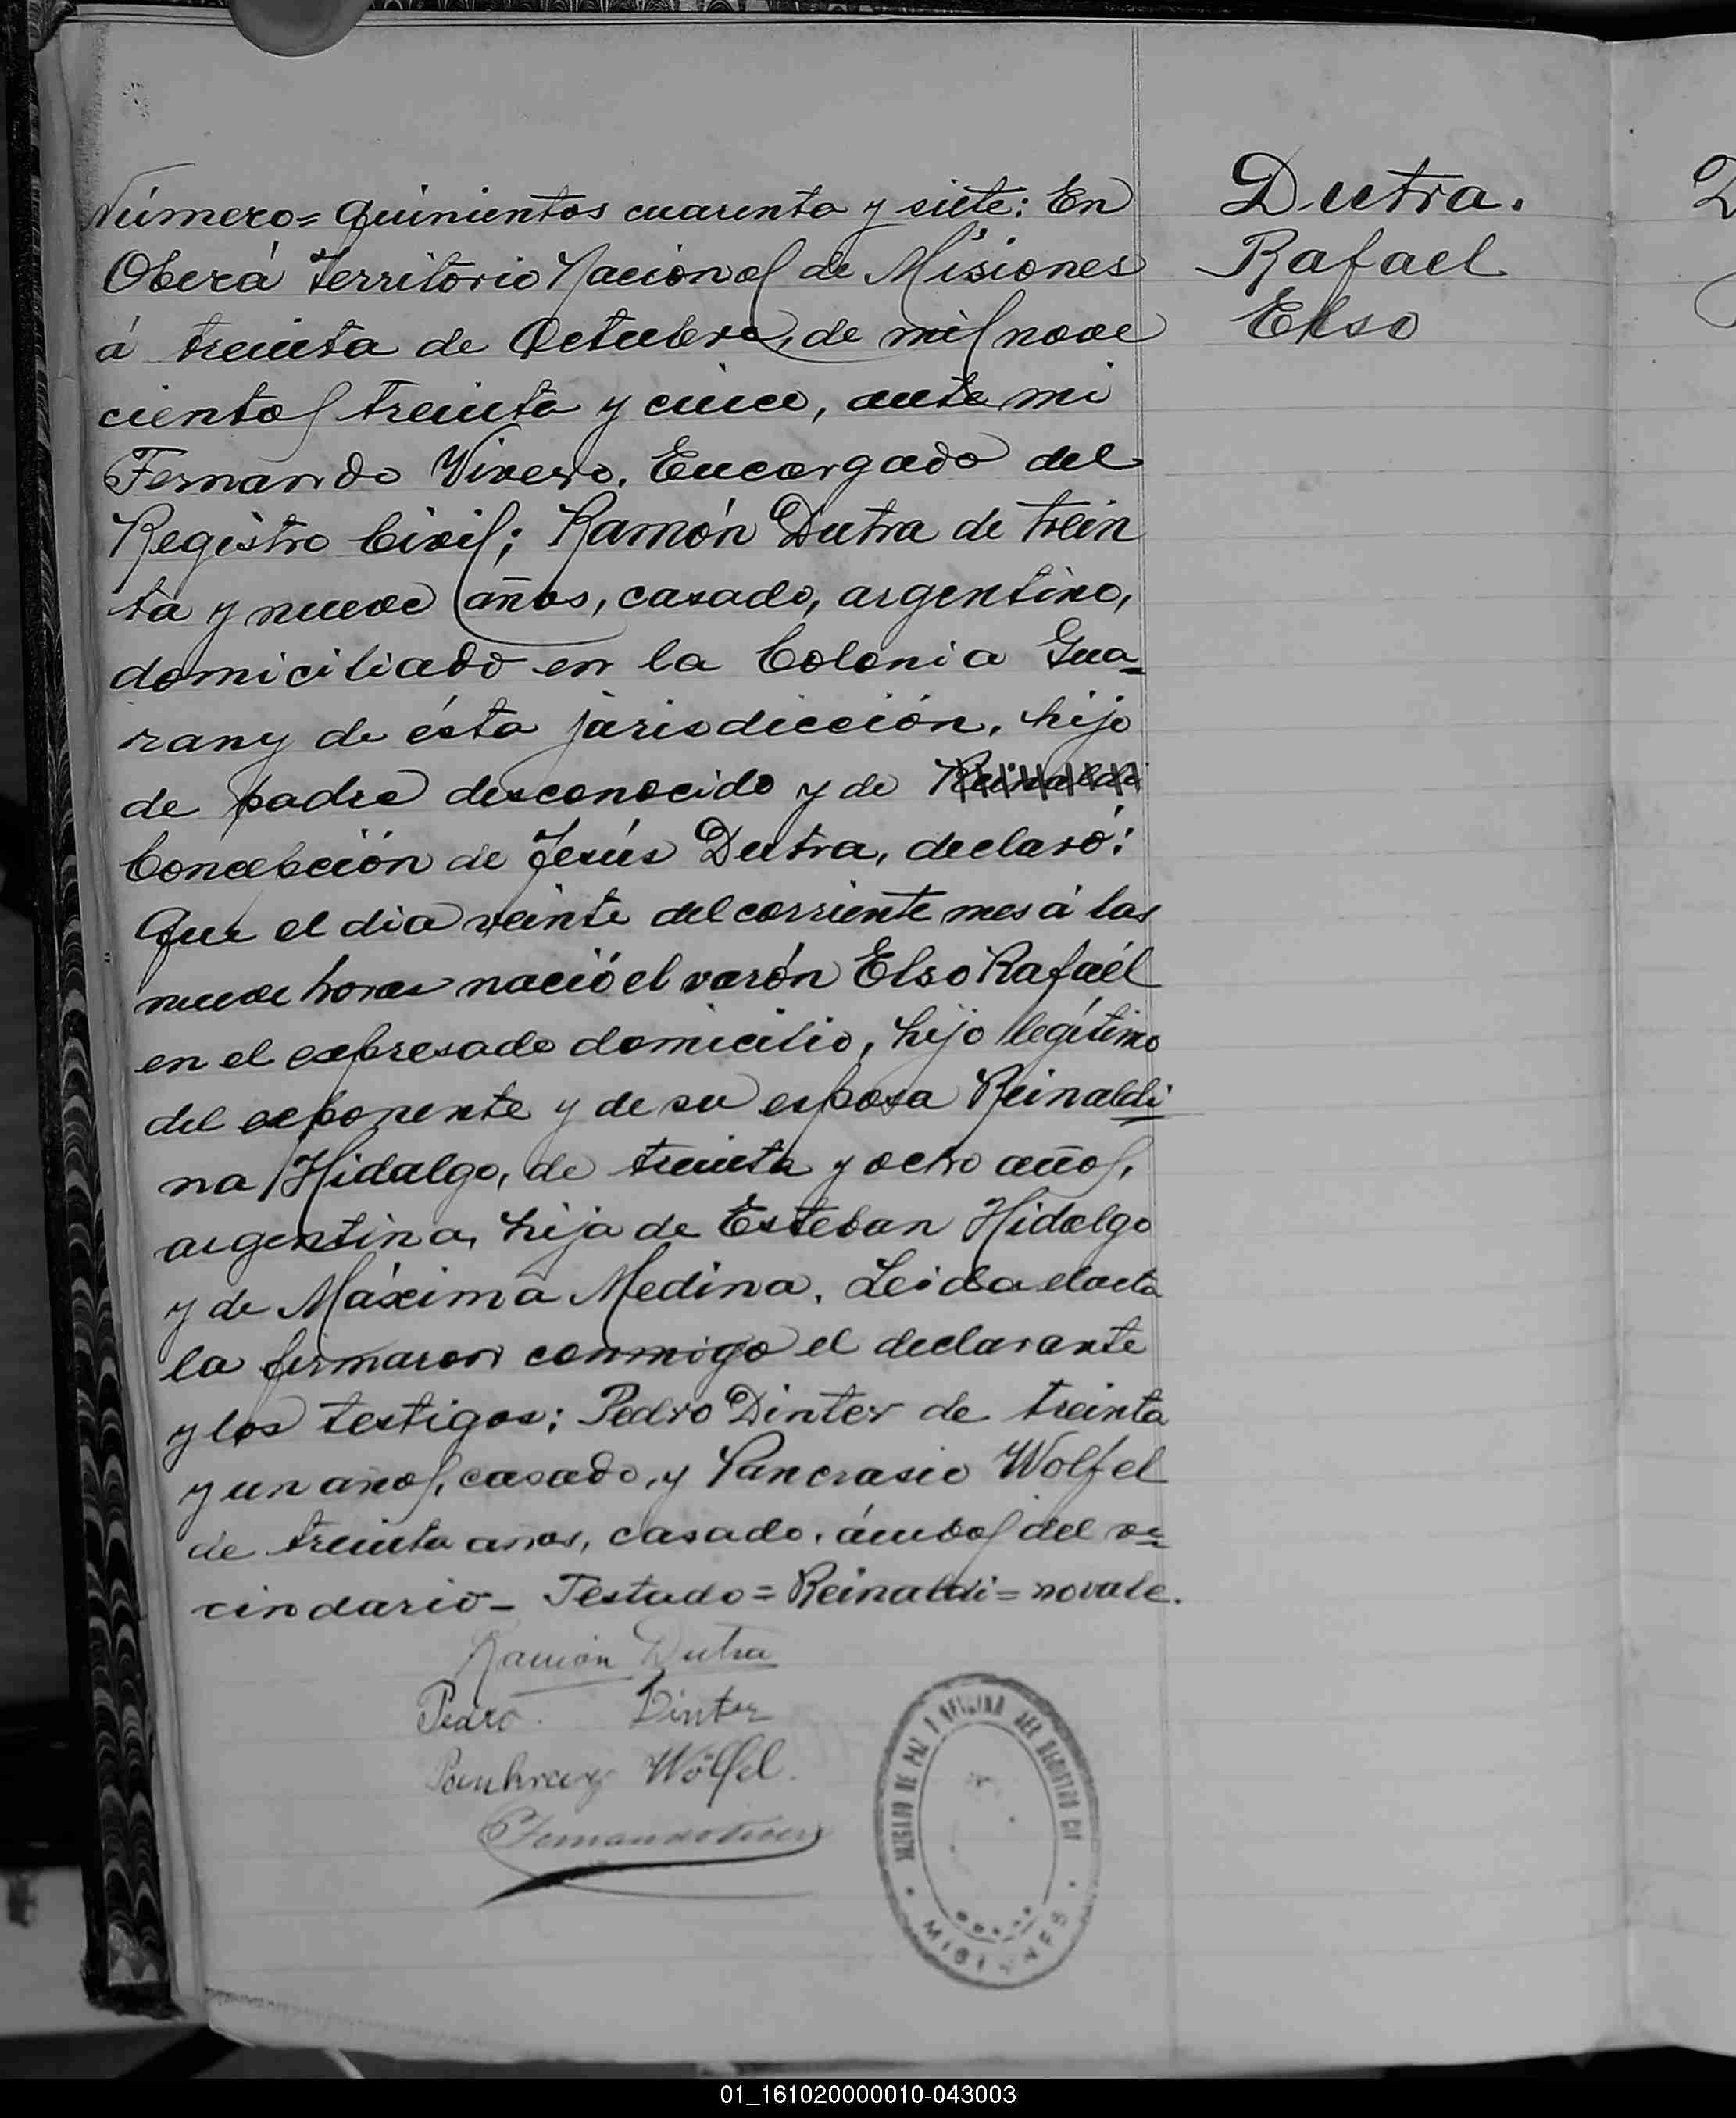 Número= Quinientos cuarenta y siete: En
Oberá Territorio Nacional de Misiones
á treinta de Octubre, de mil nove
cientos treinta y cinco, ante mi
Fernando Vivero, Encargado del
Registro Civil; Ramón Dutra de trein
ta y nueve años, casado, argentino,
domiciliado en la Colonia Gua=
rany de ésta jurisdicción, hijo
de padre desconocido y de Reinaldi
Concepción de Jesús Dutra, declaró:
Que el dia veinte del corriente mes á las
nueve horas nació el varón Elso Rafaél
en el expresado domicilio, hijo legítimo
del exponente y de su esposa Reinaldi=
na Hidalgo, de treinta y ocho años,
argentina, hija de Esteban Hidalgo
y de Máxima Medina. Leida el acta
la firmaron conmigo el declarante
y los testigos; Pedro Dinter de treinta
y un años, casado, y Pancrasio Wolfel
de treinta años, casado, ámbos del ve=
cindario_ Testado=Reinaldi=no vale.
Ramón Dutra
Pedro. Dinter
Wölfel.
Fernando Vivero
Dutra.
Rafael
Elso
JUZGADO DE PAZ Y OFICINA DEL REGISTRO CIV
MISIONES
D
01_161020000010-043003